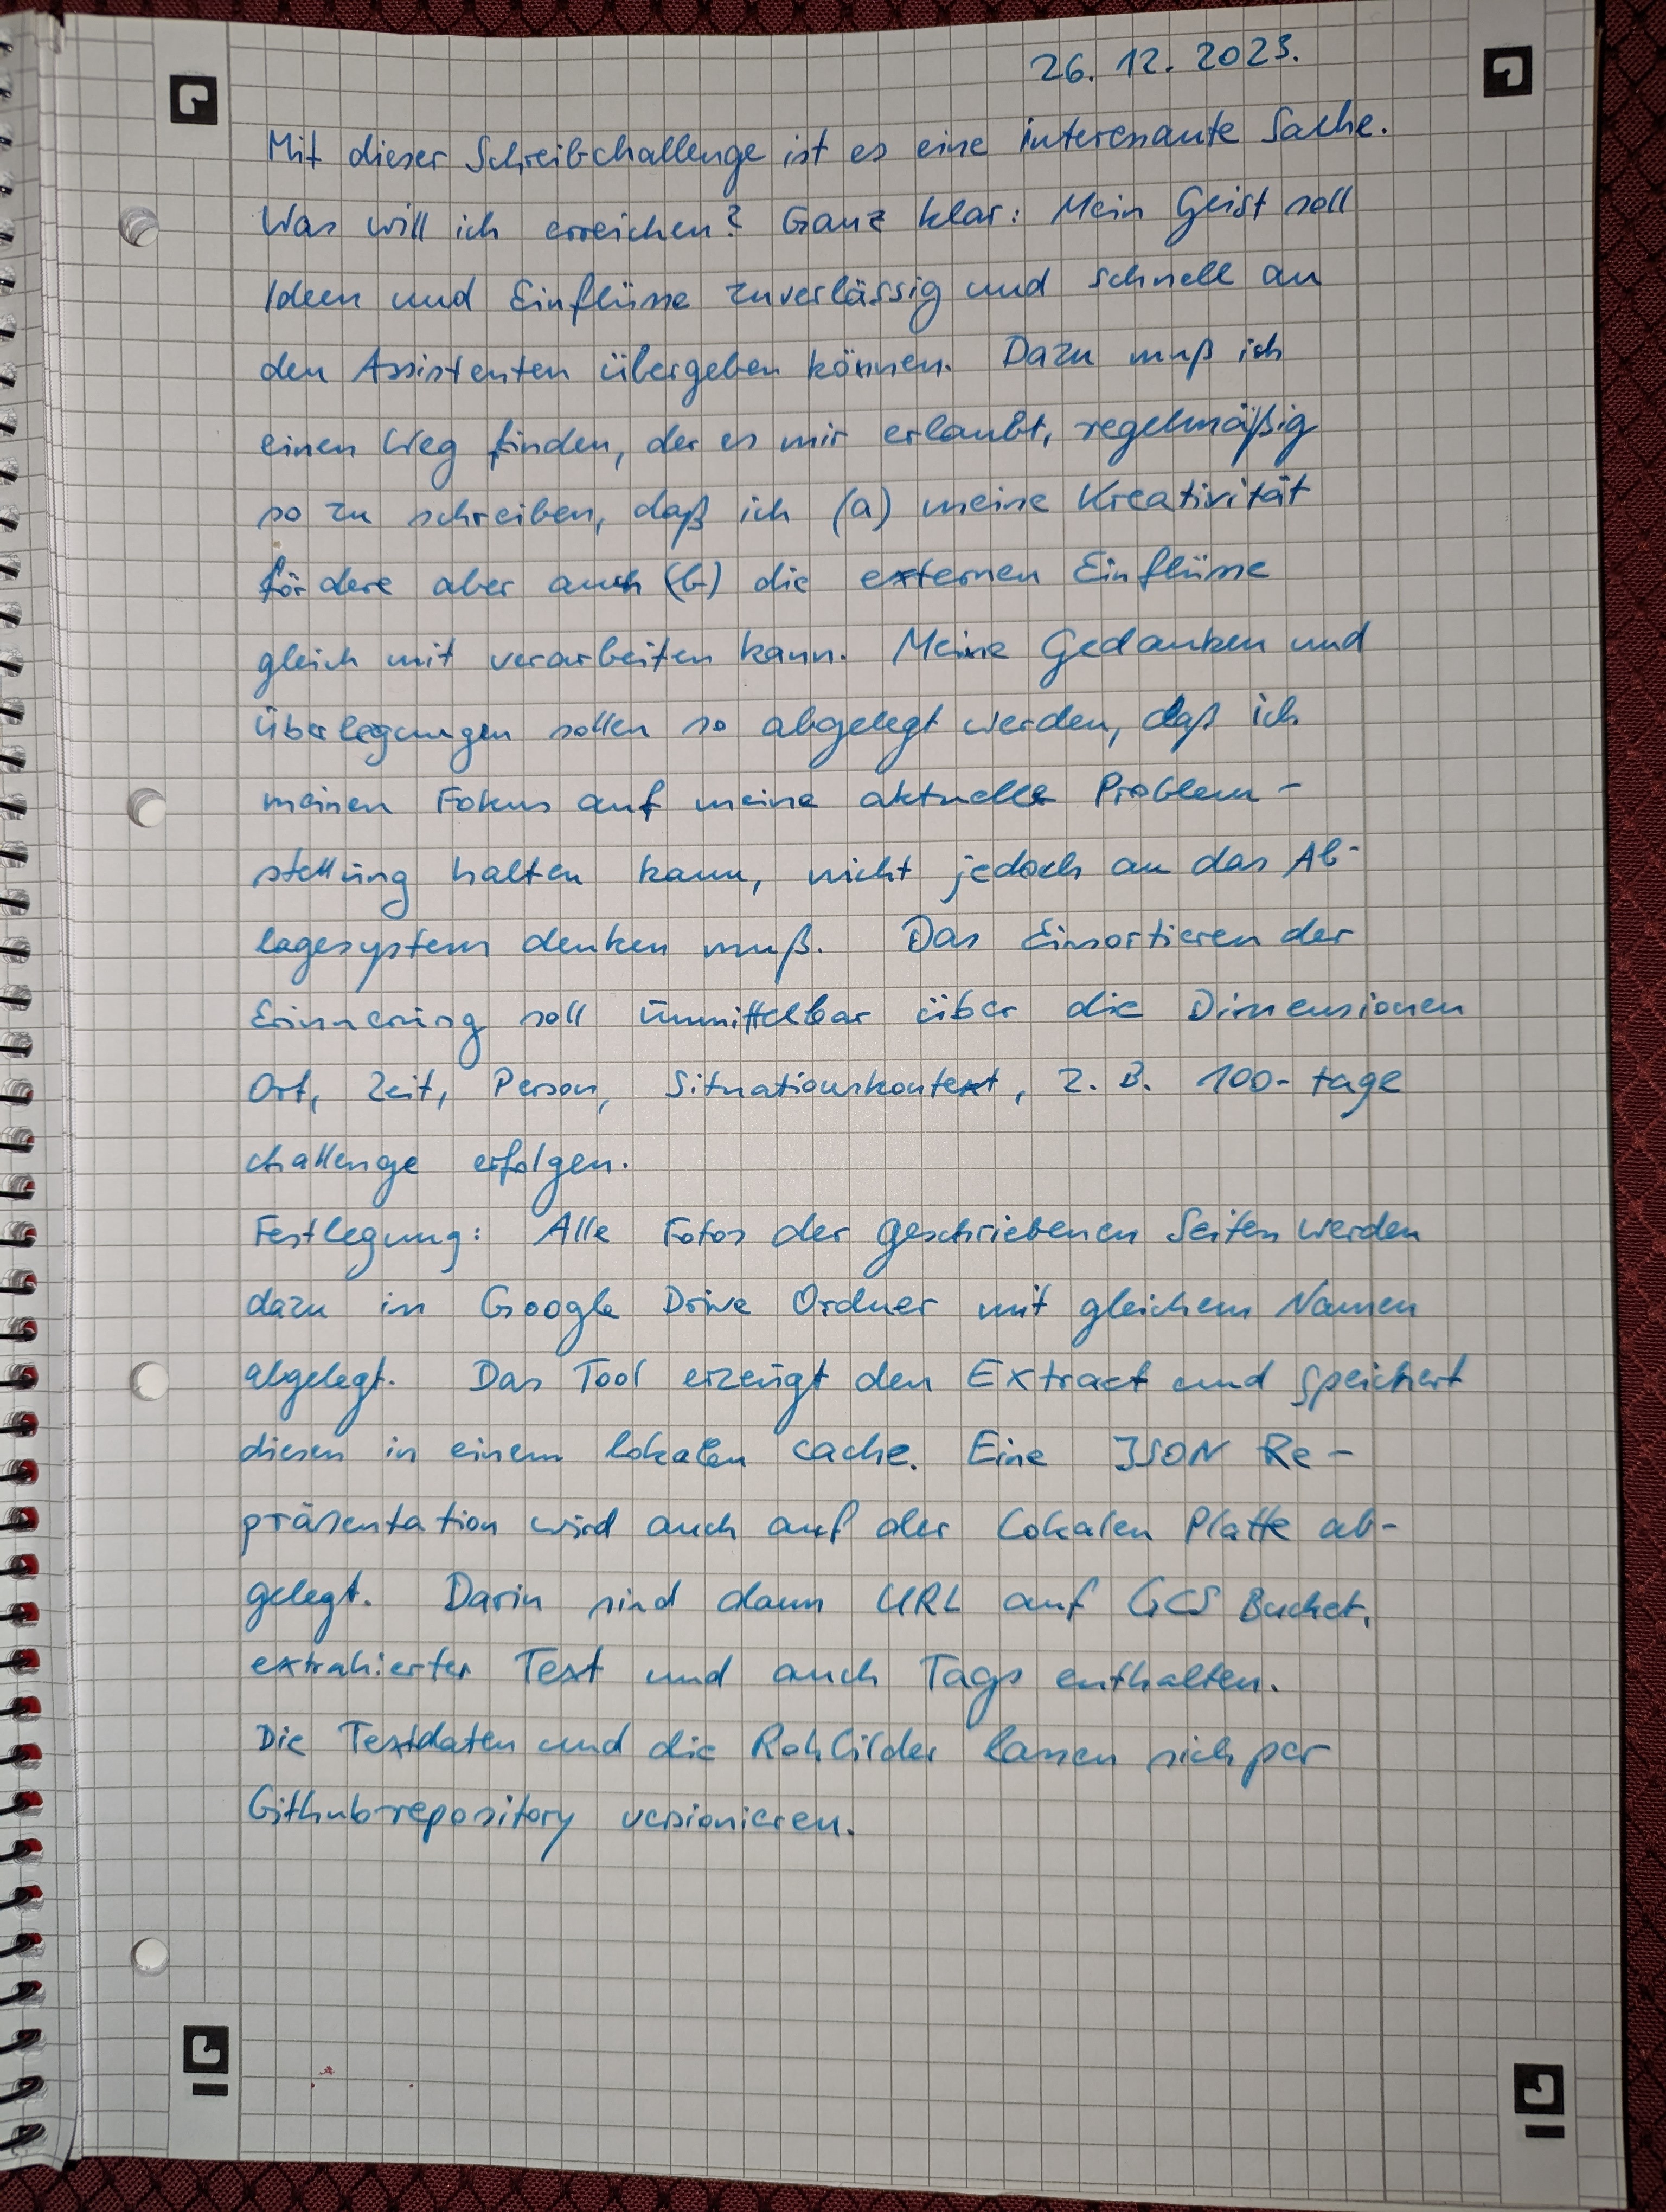 26. 12. 2023.
Mit dieser Schreibchallenge ist es eine interessante Sache.
Was will ich erreichen? Ganz klar: Mein Geist soll
Ideen und Einflüsse zuverlässig und schnell an
den Assistenten übergeben können. Dazu muß ich
einen Weg finden, der es mir erlaubt, regelmäßig
so zu schreiben, daß ich (a) meine Kreativität
fördere aber auch (b) die externen Einflüsse
gleich mit verarbeiten kann. Meine Gedanken und
Überlegungen sollen so abgelegt werden, daß ich
meinen Fokus auf meine aktuelle Problem-
stellung halten kann, nicht jedoch an das Ab-
lagesystem denken muß. Das Einsortieren der
Erinnerung soll unmittelbar über die Dimensionen
Ort, Zeit, Person, Situationskontext, z. B. 100-tage
challenge erfolgen.
Festlegung: Alle Fotos der geschriebenen Seiten werden
dazu in Google Drive Ordner mit gleichem Namen
abgelegt. Das Tool erzeugt den Extract und speichert
diesen in einem lokalen cache. Eine JSON Re-
präsentation wird auch auf der lokalen Platte ab-
gelegt. Darin sind dann URL auf GCS Bucket,
extrahierter Text und auch Tags enthalten.
Die Textdaten und die Rohbilder lassen sich per
Github-repository versionieren.